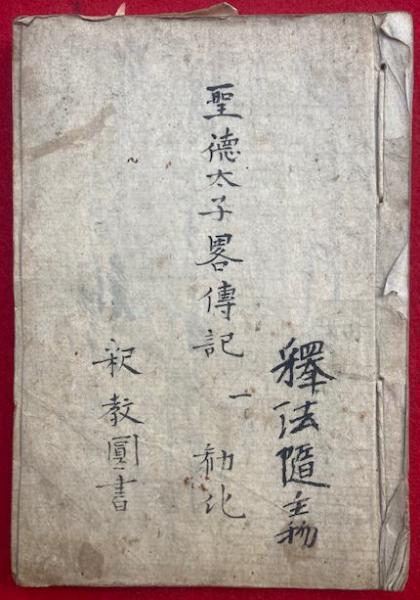 釋法隨主物
聖德太子畧傳記 一 勧化
釈教圓書